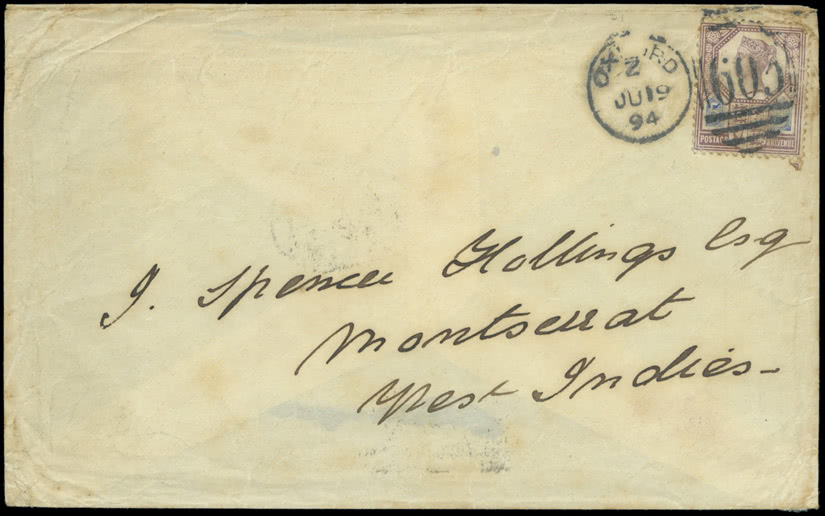 OXFORD
Z
JU 19
94
603
POSTAGE REVENUE
J. Spencer Hollings Esq
Montserrat
West Indies-